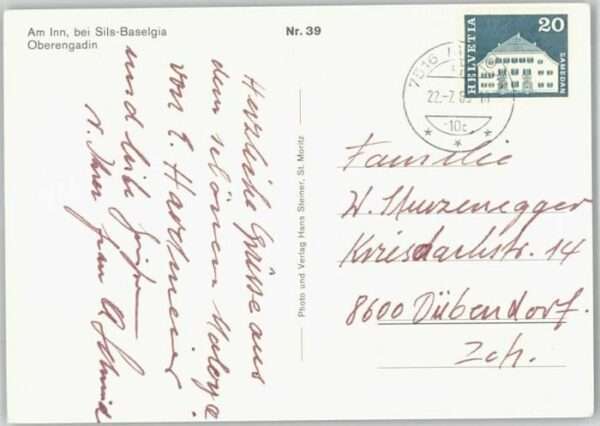 Am Inn, bei Sils-Baselgia
Oberengadin
Nr. 39
HELVETIA
20
SAMEDAN
7516
22.-7.
-10
Photo und Verlag Hans Steiner, St. Moritz
Herzliche Grüsse aus
dem schönen Maloja
von E. Hartmeier
und liebe Grüsse
v. Ihrer Frau A Schmid
Familie
W. Sturzenegger
Kriesbachstr. 14
8600 Dübendorf.
Zch.